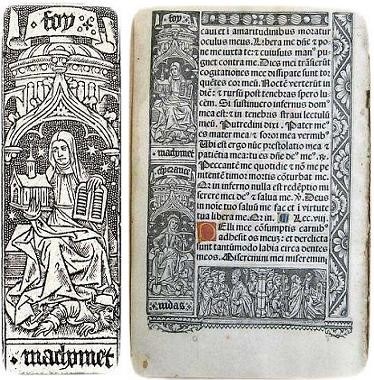 foy
machymet
caui et i amaritudinibus moratur
oculus meus. Libera me dñe & po
ne me iuxta te: & cuiusuis man⁹ pu
gnet contra me. Dies mei trāsierūt
cogitationes mee dissipate sunt tor
quētes cor meū. Noctē verterūt in
diē: & rursū post tenebras spero lu
cem. Si sustinuero infernus dom⁹
mea est: & in tenebris straui lectulū
meū. Putredini dixi. Pater me⁹
es mater mea & soror mea vermib⁹
Ubi est ergo nūc prestolatio mea &
patiētia mea: tu es dñe de⁹ me⁹. ℟.
Peccantē me quotidie & nō me pe
nitentē timor mortis cōturbat me.
Qr in inferno nulla est redēptio mi
serere mei de⁹ & salua me. ℣. Deus
in noīe tuo saluū me fac et i virtute
tua libera me. Qr in. Lec. viii.
Pelli mee cōsumptis carnib⁹
adhesit os meū: et derelicta
sunt tantūmodo labia circa dentes
meos. Miseremini mei miseremini
machymet
esperance
iudas